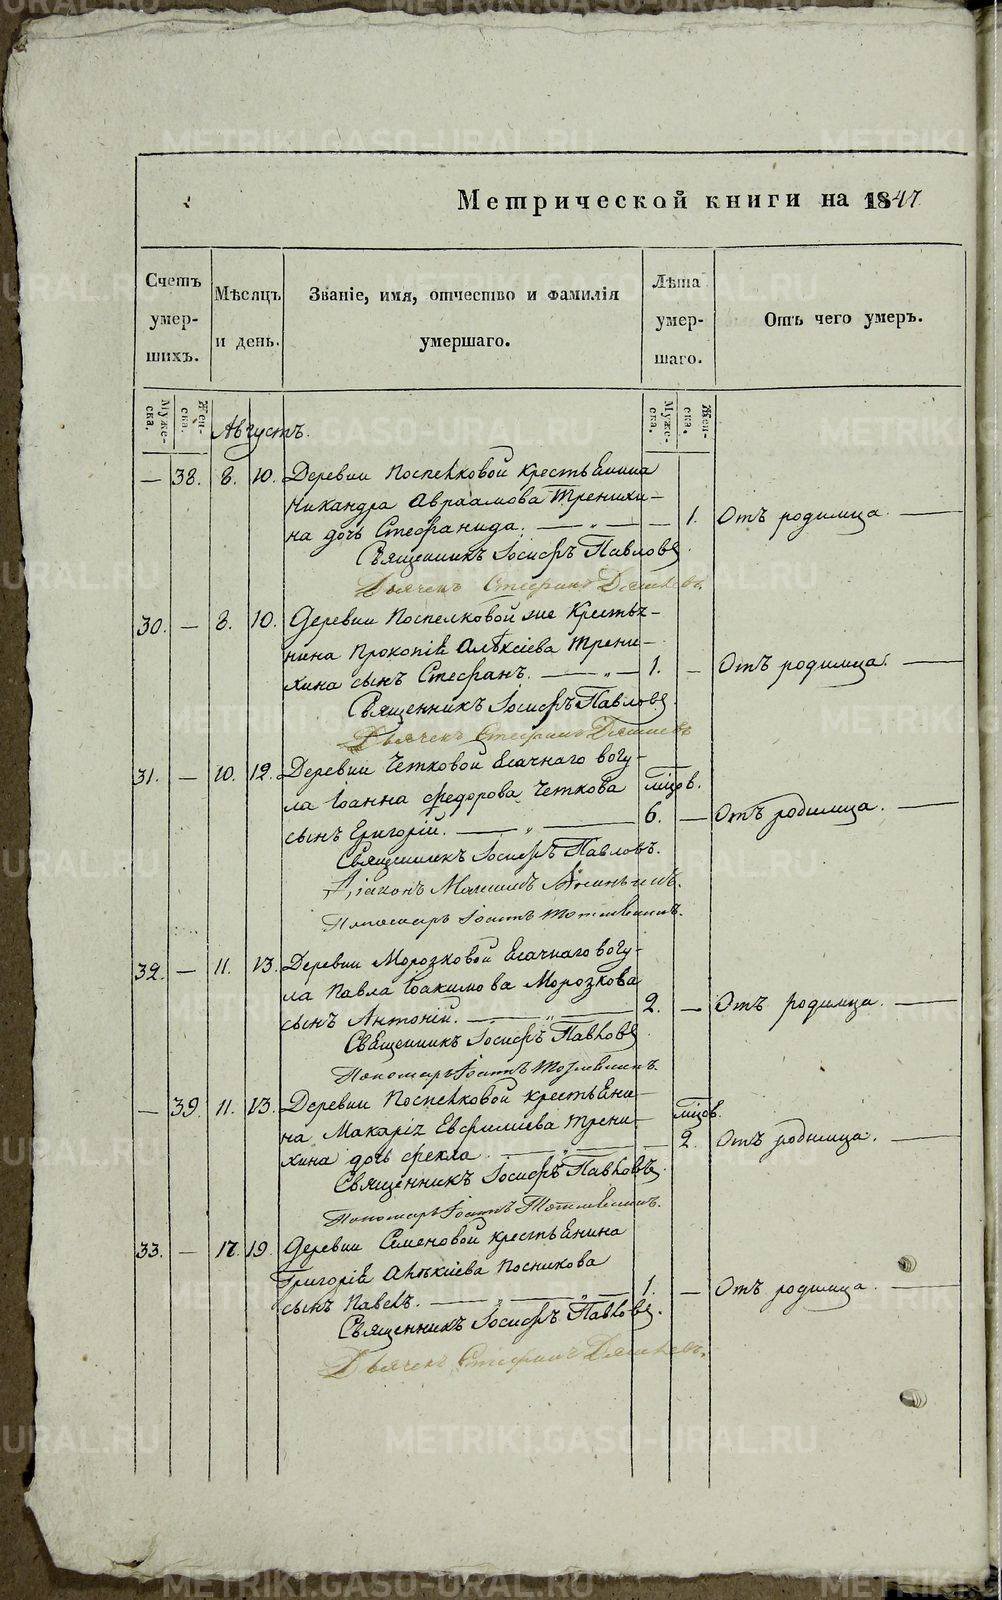 Метрической книги на 1847
Счетъ умершихъ.
Мѣсяцъ и день.
Званіе, имя, отчество и фамилія умершаго.
Лѣта умершаго.
Отъ чего умеръ.
Мужеска.
Женска.
Мужеска.
Женска.
Августъ.
— 38. 8. 10. Деревни Поспелковой крестьянина
Никандра Авраамова Тренихи-
на дочь Стефанида. — „ — — 1. Отъ родимца. —
Священникъ Іосифъ Павловъ.
Дьячекъ Стефанъ
30. — 8. 10. Деревни Поспелковой же Крестья-
нина Прокопія Алексіева Трени-
хина сынъ Стефанъ. — „ — 1. — Отъ родимца. —
Священникъ Іосифъ Павловъ.
Дьячекъ Стефанъ
31. — 10. 12. Деревни Четковой Ясачнаго вогу-
ла Іоанна Федорова Четкова мѣсяцов.
сынъ Григорій. — „ — 6. — Отъ родимца. —
Священникъ Іосифъ Павловъ.
Діаконъ
Пономарь Іоаннъ
32. — 11. 13. Деревни Морозковой Ясачнаго вогу-
ла Павла Іоакимова Морозкова
сынъ Антоній. — „ — 2. — Отъ родимца. —
Священникъ Іосифъ Павловъ
Пономарь Іоаннъ
— 39. 11. 13. Деревни Поспелковой крестьяни-
на Макарія Евфиміева Трени- мѣсяцов.
хина дочь Фекла. — „ — — 2. Отъ родимца. —
Священникъ Іосифъ Павловъ.
Пономарь Іоаннъ
33. — 17. 19. Деревни Семеновой крестьянина
Григорія Алексіева Посникова
сынъ Павелъ. — „ — „ — 1. — Отъ родимца. —
Священникъ Іосифъ Павловъ.
Дьячекъ Стефанъ
METRIKI.GASO-URAL.RU